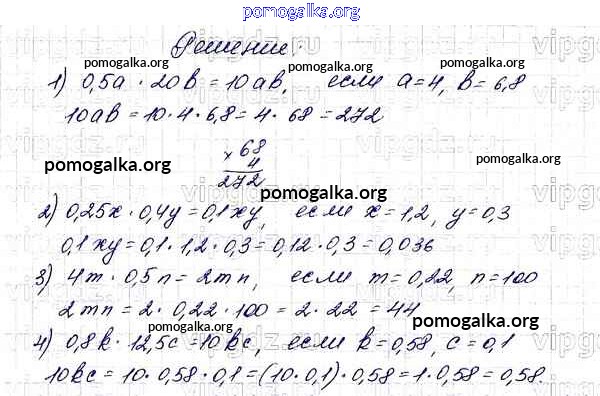 pomogalka.org
Решение:
1) 0,5a · 20b = 10ab, если a=4, b=6,8
10ab = 10·4·6,8 = 4·68 = 272
× 68
4
272
2) 0,25x · 0,4y = 0,1xy, если x=1,2, y=0,3
0,1xy = 0,1·1,2·0,3 = 0,12·0,3 = 0,036
3) 4m · 0,5n = 2mn, если m=0,22, n=100
2mn = 2·0,22·100 = 2·22 = 44
4) 0,8k · 12,5c = 10kc, если k=0,58, c=0,1
10kc = 10·0,58·0,1 = (10·0,1)·0,58 = 1·0,58 = 0,58.
pomogalka.org
pomogalka.org
pomogalka.org
pomogalka.org
pomogalka.org
pomogalka.org
pomogalka.org
pomogalka.org
pomogalka.org
vipgdz.ru